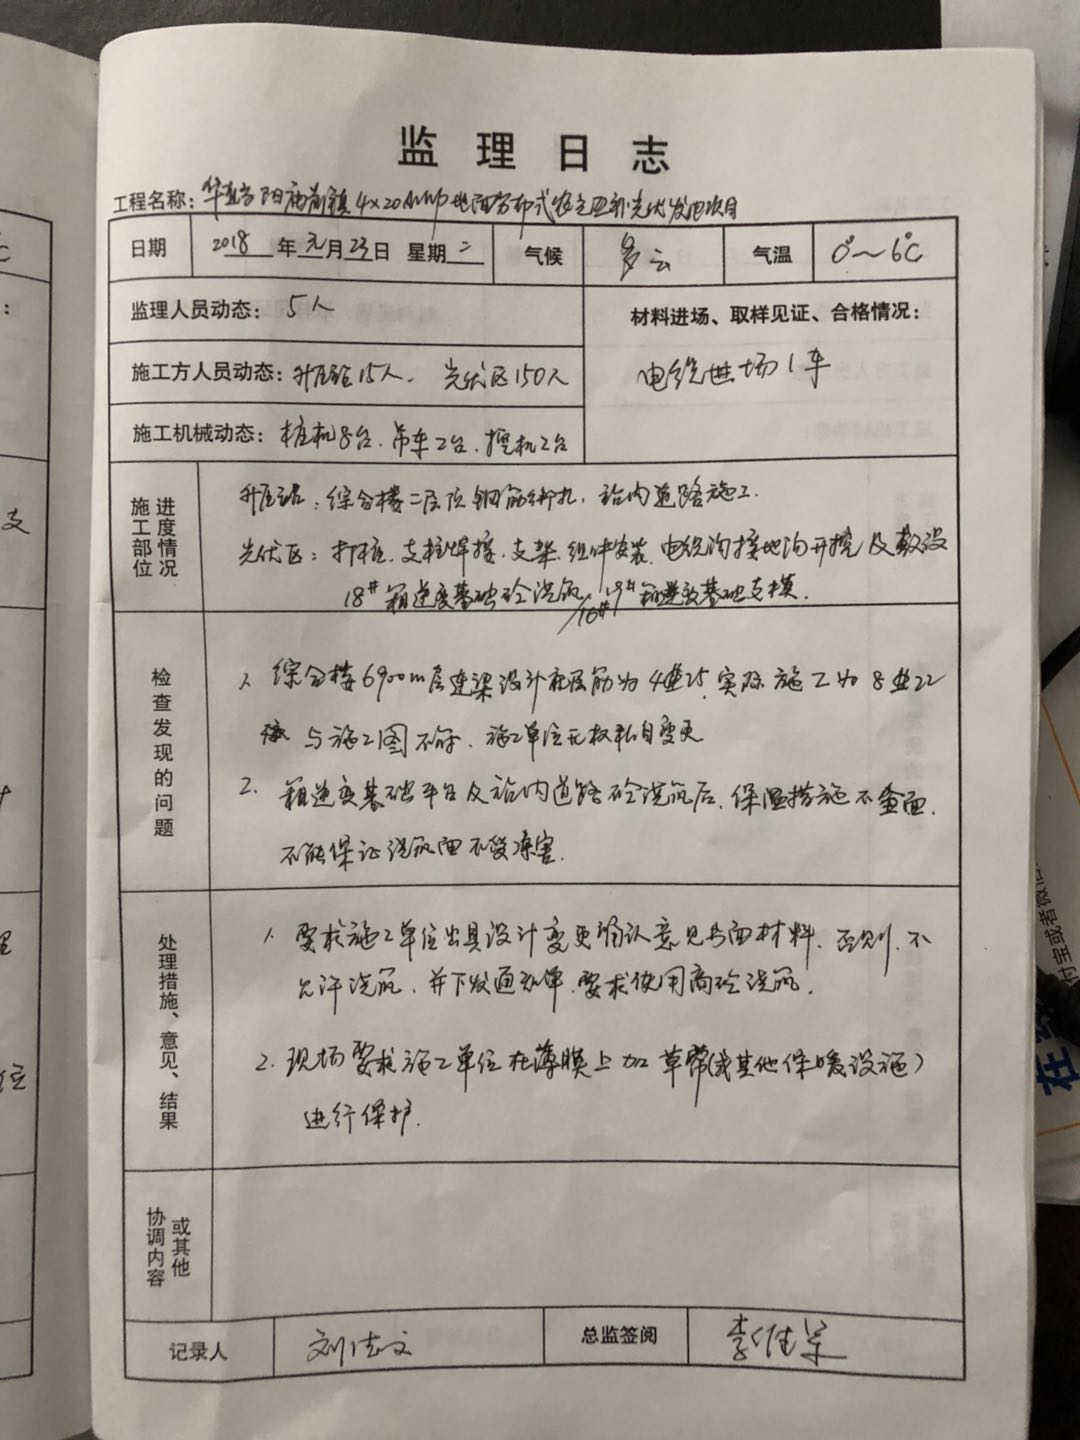 监理日志
工程名称：华 阳庙前镇4×20MWp地面分布式农光互补光伏发电项目
日期 2018年元月23日 星期二 气候 多云 气温 0°～6℃
监理人员动态：5人
材料进场、取样见证、合格情况：
施工方人员动态：升压站15人、光伏区150人
电缆进场1车
施工机械动态：桩机8台、吊车2台、挖机2台
进度情况
施工部位
升压站：综合楼二层顶钢筋绑扎，站内道路施工.
光伏区：打桩、支柱焊接、支架、组件安装、电缆沟接地沟开挖及敷设
18#箱逆变基础砼浇筑/16#19#箱逆变基础支模.
检查发现的问题
1. 综合楼6900m层连梁设计底层筋为4⏀25，实际施工为8⏀22
与施工图不符、施工单位无权私自变更
2. 箱逆变基础平台及站内道路砼浇筑后，保温措施不全面，
不能保证浇筑面不受冻害.
处理措施、意见、结果
1. 要求施工单位出具设计变更确认意见书面材料，否则，不
允许浇筑，并下发通知单，要求使用商砼浇筑.
2. 现场要求施工单位在薄膜上加草帘（或其他保暖设施）
进行保护.
或其他
协调内容
记录人 刘 文 总监签阅 李